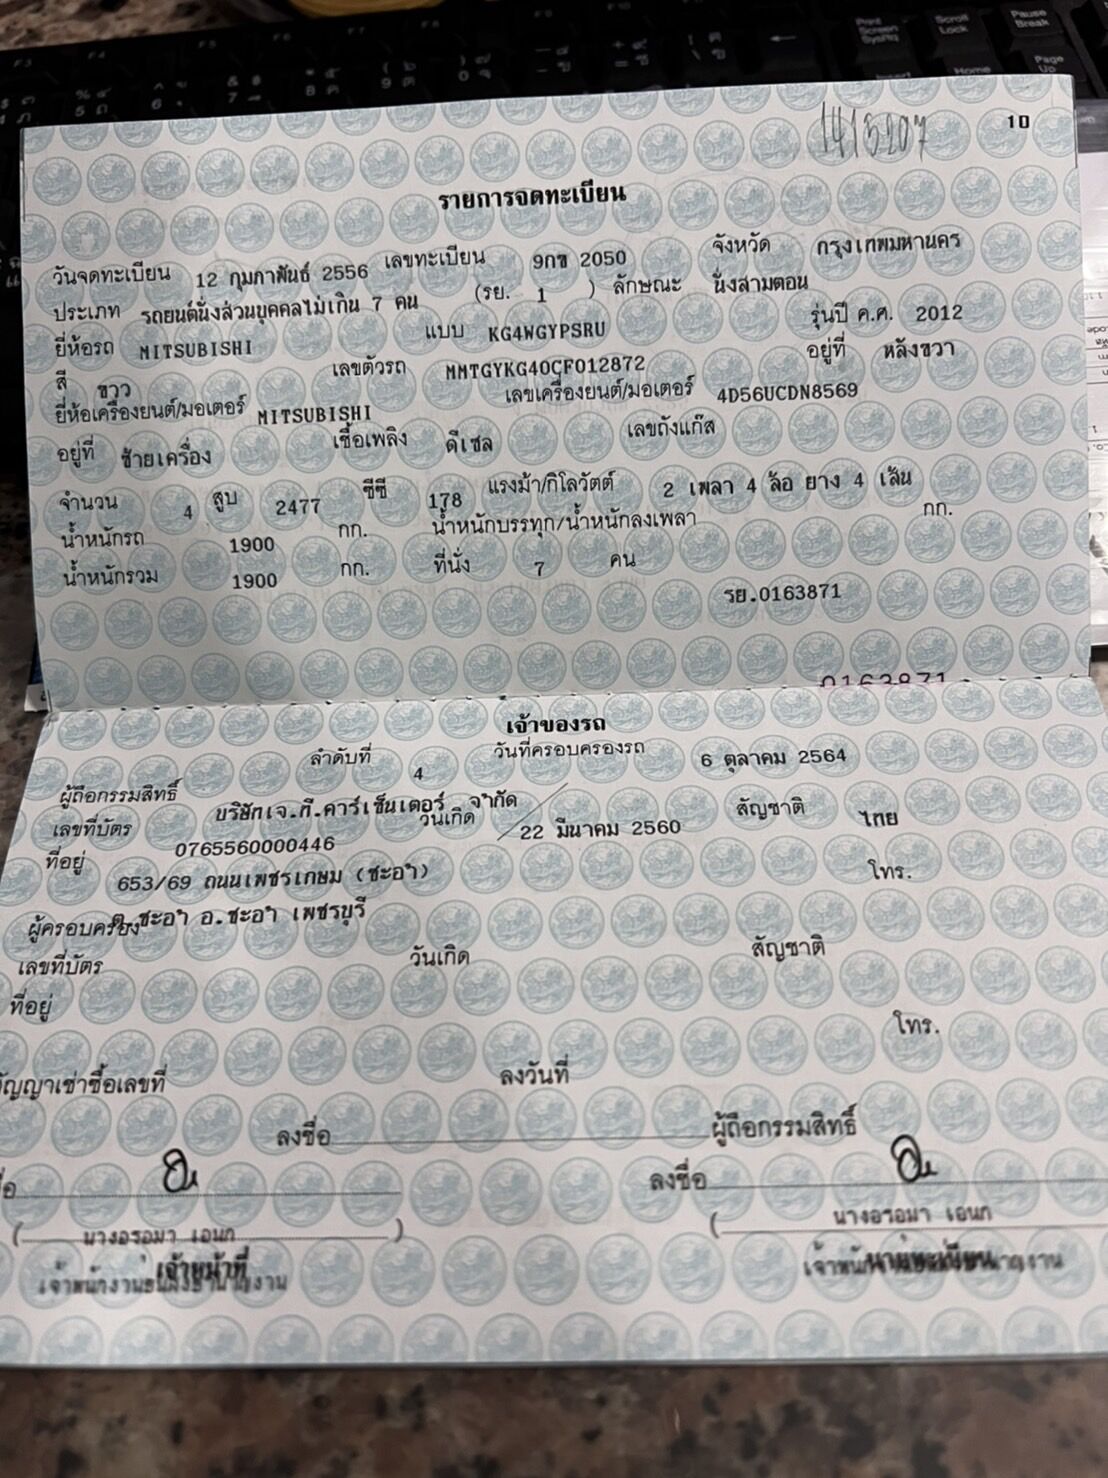 1415207
10
รายการจดทะเบียน
วันจดทะเบียน 12 กุมภาพันธ์ 2556 เลขทะเบียน 9กข 2050 จังหวัด กรุงเทพมหานคร
ประเภท รถยนต์นั่งส่วนบุคคลไม่เกิน 7 คน (รย. 1 ) ลักษณะ นั่งสามตอน
ยี่ห้อรถ MITSUBISHI แบบ KG4WGYPSRU รุ่นปี ค.ศ. 2012
สี ขาว เลขตัวรถ MMTGYKG40CF012872 อยู่ที่ หลังขวา
ยี่ห้อเครื่องยนต์/มอเตอร์ MITSUBISHI เลขเครื่องยนต์/มอเตอร์ 4D56UCDN8569
อยู่ที่ ซ้ายเครื่อง เชื้อเพลิง ดีเซล เลขถังแก๊ส
จำนวน 4 สูบ 2477 ซีซี 178 แรงม้า/กิโลวัตต์ 2 เพลา 4 ล้อ ยาง 4 เส้น
น้ำหนักรถ 1900 กก. น้ำหนักบรรทุก/น้ำหนักลงเพลา กก.
น้ำหนักรวม 1900 กก. ที่นั่ง 7 คน
รย.0163871
0163871
เจ้าของรถ
ลำดับที่ 4 วันที่ครอบครองรถ 6 ตุลาคม 2564
ผู้ถือกรรมสิทธิ์ บริษัทเจ.กี.คาร์เซ็นเตอร์ จำกัด
เลขที่บัตร 0765560000446 วันเกิด 22 มีนาคม 2560 สัญชาติ ไทย
ที่อยู่ 653/69 ถนนเพชรเกษม (ชะอำ) โทร.
ต.ชะอำ อ.ชะอำ เพชรบุรี
ผู้ครอบครอง
เลขที่บัตร วันเกิด สัญชาติ
ที่อยู่
โทร.
สัญญาเช่าซื้อเลขที่ ลงวันที่
ลงชื่อ ผู้ถือกรรมสิทธิ์
ลงชื่อ
( นางอรอมา เอนก ) ( นางอรอมา เอนก
เจ้าหน้าที่ นายทะเบียน